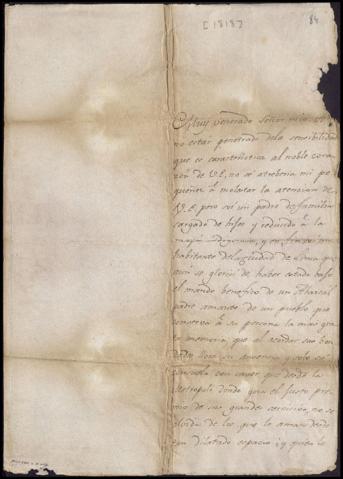 [1818]
84
Muy venerado Señor mio: 
no estar penetrado dela sensibilidad
que es caracteristica al noble cora-
zon de V.E, no se atreberia mi pe-
queñez à molestar la atencion de
V.E. pero soi un padre de familia
cargada de hijos y reducido à la
mayor y en fin soi un
habitante dela Ciudad de Lima que
aun se gloría de haber estado bajo
el mando benefico de un
padre amante de un pueblo que
conserva à su persona la mas gra-
ta memoria, que al acordar sus bon-
dades llora su ausencia, y solo se
consuela con saber que desde la
Metropoli donde goza el justo pre-
mio de sus grandes servicios, no se
olvida de los que lo aman desde
tan dilatado espacio; y quien lo